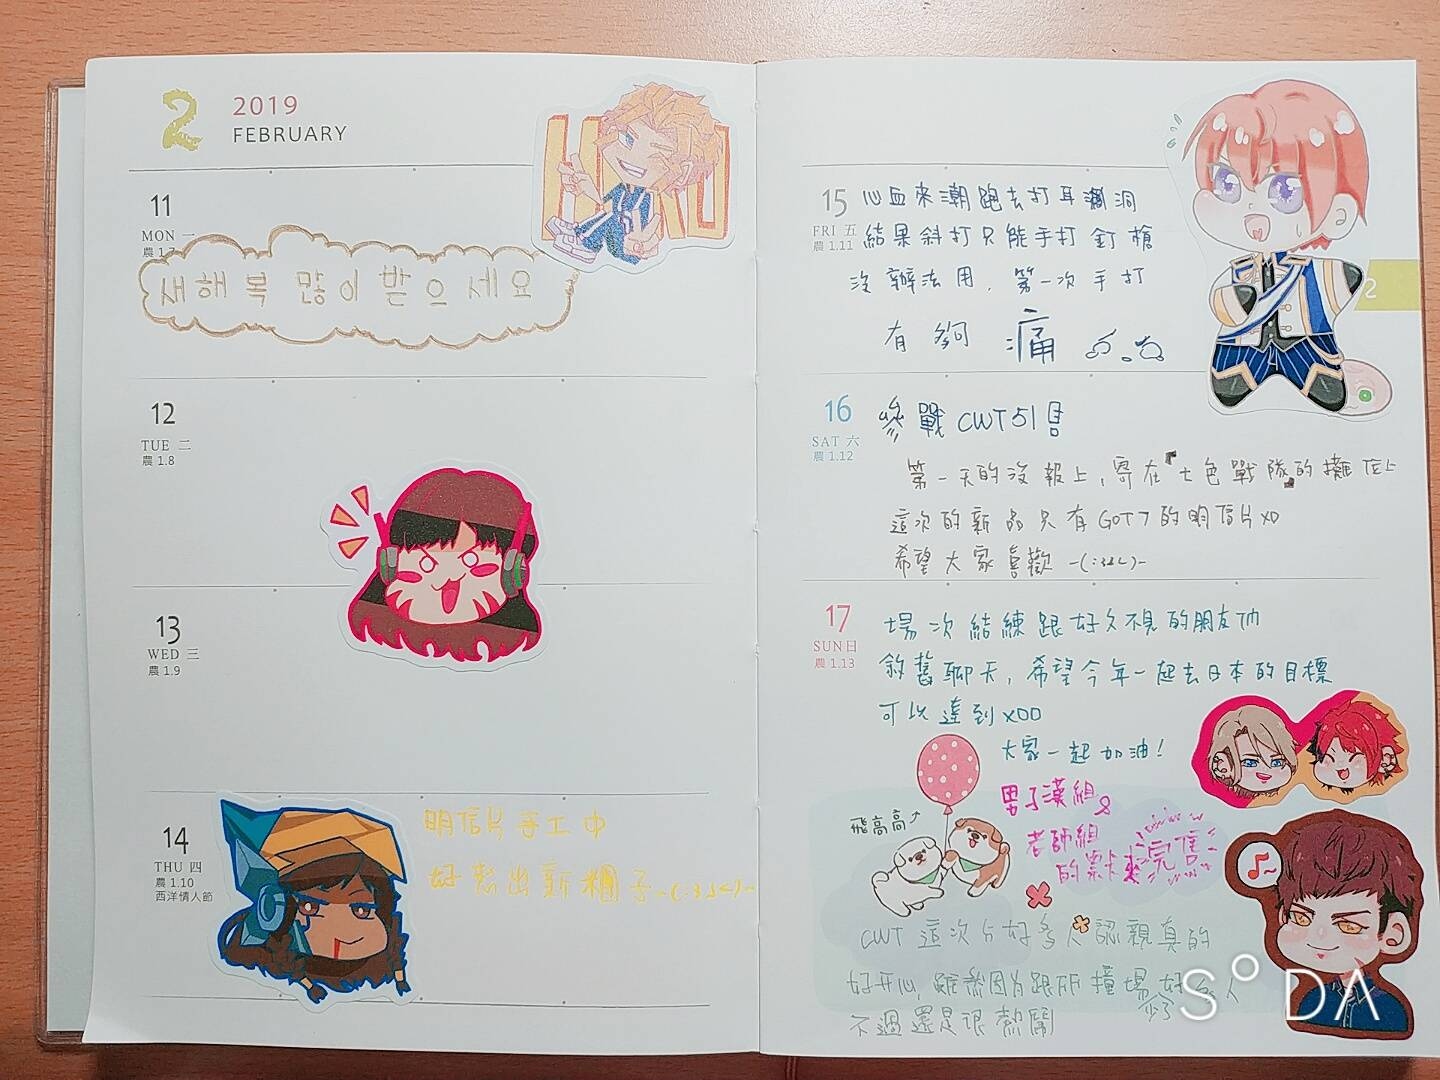 2
2019
FEBRUARY
11
MON 一
農 1.7
새해 복 많이 받으세요
12
TUE 二
農 1.8
13
WED 三
農 1.9
14
THU 四
農 1.10
西洋情人節
明信片手工中
好想出新團子~(:3JL)~
15
FRI 五
農 1.11
心血來潮跑去打耳洞
結果斜打只能手打釘槍
沒辦法用，第一次手打
有夠痛
2
16
SAT 六
農 1.12
參戰CWT51
第一天的沒報上，寄在七色戰隊的攤位上
這次的新品只有GOT7的明信片XD
希望大家喜歡~(:3JL)~
17
SUN 日
農 1.13
場次結練跟好久不見的朋友們
敘舊聊天，希望今年一起去日本的目標
可以達到XDD
大家一起加油！
飛高高
男子漢組&
老師組
的票卡 完售
CWT這次分好多人認親真的
好開心，雖然因為跟 撞場 好多人
少了
不過還是很熱鬧
S°DA